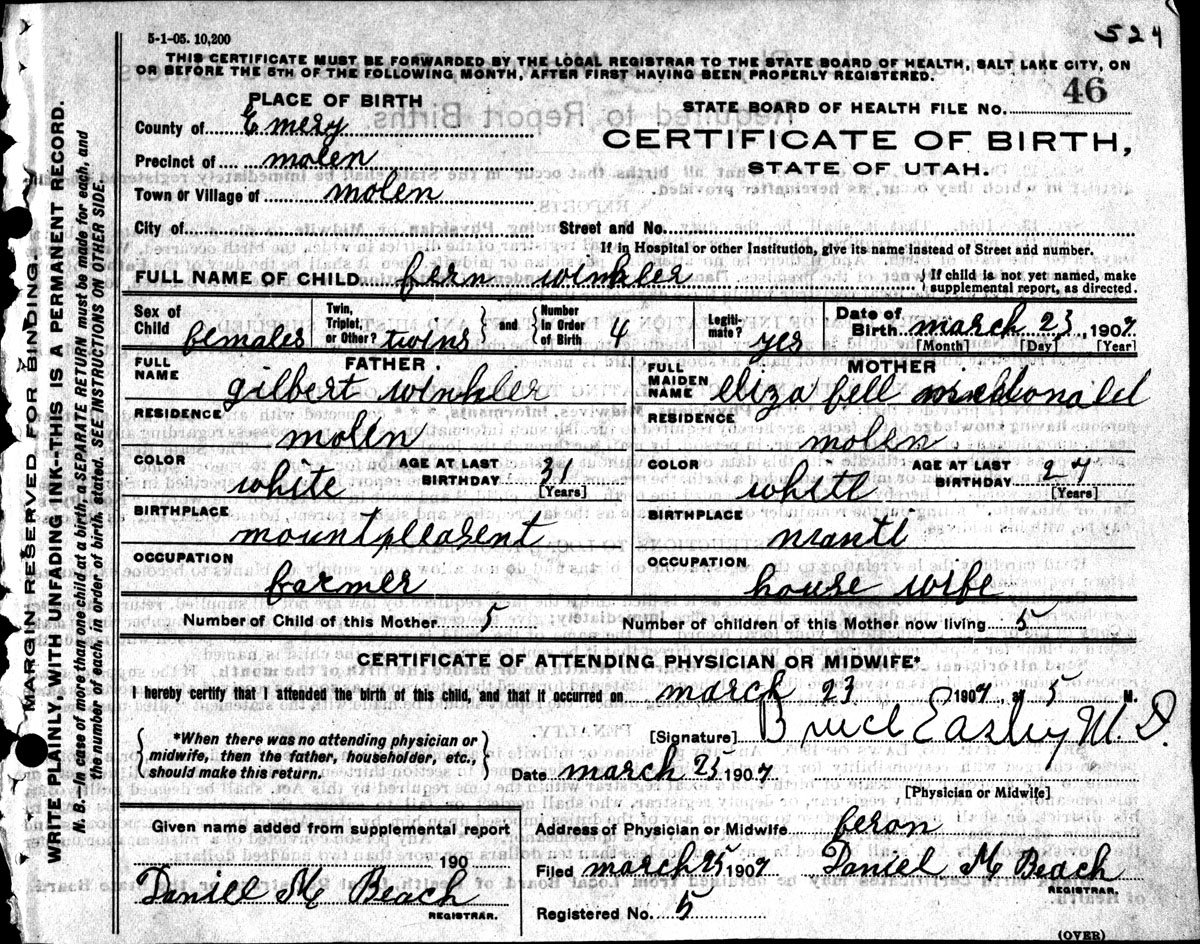 524
5-1-05. 10,200
THIS CERTIFICATE MUST BE FORWARDED BY THE LOCAL REGISTRAR TO THE STATE BOARD OF HEALTH, SALT LAKE CITY, ON
OR BEFORE THE 5TH OF THE FOLLOWING MONTH, AFTER FIRST HAVING BEEN PROPERLY REGISTERED.
PLACE OF BIRTH
STATE BOARD OF HEALTH FILE NO. 46
County of Emery
CERTIFICATE OF BIRTH,
Precinct of molen
STATE OF UTAH.
Town or Village of molen
City of Street and No.
If in Hospital or other Institution, give its name instead of Street and number.
FULL NAME OF CHILD fern winkler { If child is not yet named, make supplemental report, as directed.
Sex of Child females Twin, Triplet, or Other? twins } and { Number in Order of Birth 4 Legiti-mate? yes Date of Birth march 23, 1907
[Month] [Day] [Year]
FATHER.
FULL NAME gilbert winkler
RESIDENCE molen
COLOR white AGE AT LAST BIRTHDAY 31 [Years]
BIRTHPLACE mountpleasent
OCCUPATION farmer
MOTHER
FULL MAIDEN NAME eliza fell
RESIDENCE molen
COLOR white AGE AT LAST BIRTHDAY 27 [Years]
BIRTHPLACE manti
OCCUPATION house wife
Number of Child of this Mother 5 Number of children of this Mother now living 5
CERTIFICATE OF ATTENDING PHYSICIAN OR MIDWIFE*
I hereby certify that I attended the birth of this child, and that it occurred on march 23 1907, at 5 M.
{ *When there was no attending physician or midwife, then the father, householder, etc., should make this return. }
[Signature] Bruce Easley M D.
Date march 25 1907
[Physician or Midwife]
Given name added from supplemental report
190
Daniel M Beach
REGISTRAR.
Address of Physician or Midwife feron
Filed march 25 1907 Daniel M Beach
REGISTRAR.
Registered No. 5
(OVER)
MARGIN RESERVED FOR BINDING.
WRITE PLAINLY, WITH UNFADING INK--THIS IS A PERMANENT RECORD.
N. B.—In case of more than one child at a birth, a SEPARATE RETURN must be made for each, and
the number of each, in order of birth, stated. SEE INSTRUCTIONS ON OTHER SIDE.